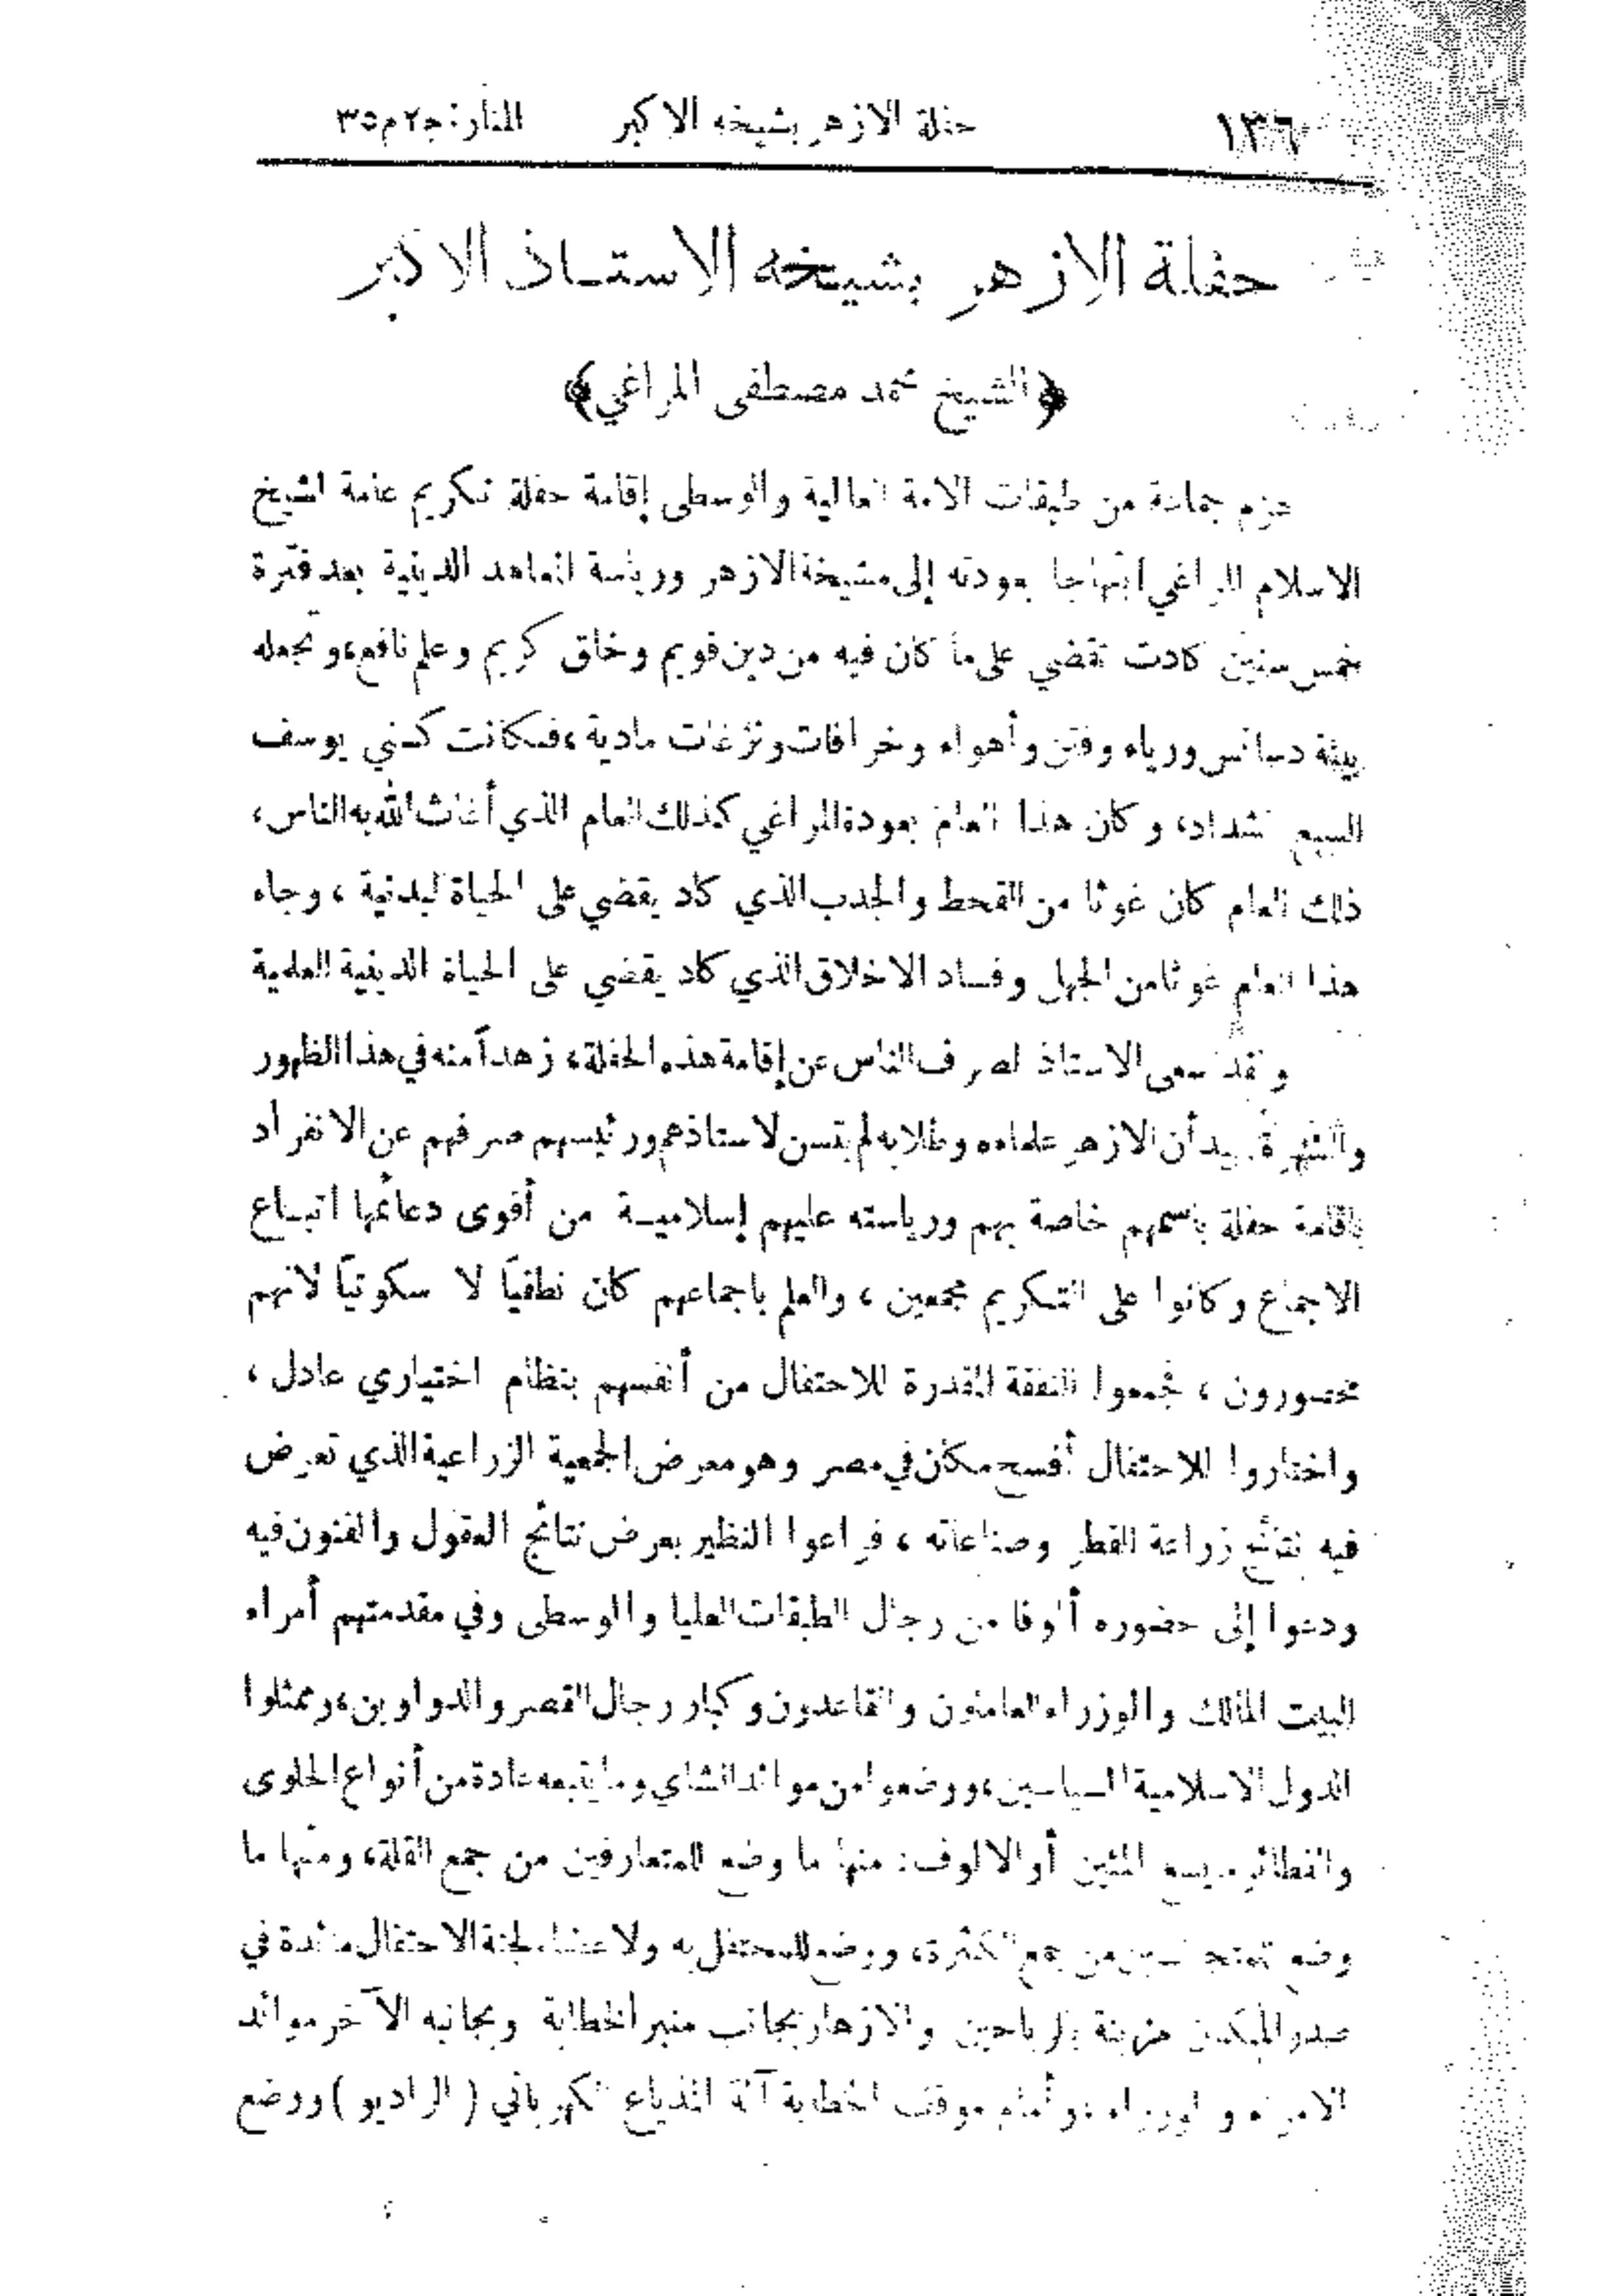 ١٣٦ حفلة الازهر بشيخه الاكبر المنار: ج٢ م٣٥
حفلة الازهر بشيخه الاستاذ الاكبر
﴿الشيخ محمد مصطفى المراغي﴾
عزم جماعة من طبقات الامة العالية والوسطى إقامة حفلة تكريم عامة لشيخ
الاسلام المراغي ابتهاجا بعودته إلى مشيخة الازهر ورياسة المعاهد الدينية بعد فترة
خمس سنين كادت تقضي على ما كان فيه من دين قويم وخلق كريم وعلم نافع، وتجعله
بيئة دسائس ورياء وفتن وأهواء وخرافات ونزغات مادية، فكانت كسني يوسف
السبع الشداد، وكان هذا العام بعودة المراغي كذلك العام الذي أغاث الله به الناس،
ذلك العام كان غوثا من القحط والجدب الذي كاد يقضي على الحياة البدنية، وجاء
هذا العام غوثا من الجهل وفساد الاخلاق الذي كاد يقضي على الحياة الدينية العلمية
ولقد سعى الاستاذ لصرف الناس عن إقامة هذه الحفلة، زهداً منه في هذا الظهور
والشهرة. بيد أن الازهر علماءه وطلابه لم يتسن لاستاذهم ورئيسهم صرفهم عن الانفراد
باقامة حفلة باسمهم خاصة بهم ورياسته عليهم إسلاميـة من أقوى دعائمها اتبـاع
الاجماع وكانوا على التكريم مجمعين، والعلم باجماعهم كان نطقياً لا سكوتياً لانهم
محصورون، فجمعوا النفقة المقدرة للاحتفال من أنفسهم بنظام اختياري عادل،
واختاروا للاحتفال أفسح مكان في مصر وهو معرض الجمعية الزراعية الذي تعرض
فيه نتائج زراعة القطر وصناعاته، فراعوا النظير بعرض نتائج العقول والفنون فيه
ودعوا إلى حضوره ألوفا من رجال الطبقات العليا والوسطى وفي مقدمتهم أمراء
البيت المالك والوزراء العاملون والقاعدون وكبار رجال القصر والدواوين، وممثلوا
الدول الاسلامية السياسيين، ووضعوا من موائد الشاي وما يتبعه عادة من أنواع الحلوى
والفطائر ما يسع المئين أو الالوف: منها ما وضع للمتعارفين من جمع القلة، ومنها ما
وضع من جمع الكثرة، ووضع للمحتفل به ولاعضاء لجنة الاحتفال مائدة في
صدر المكان مزينة بالرياحين والازهار بجانب منبر الخطابة وبجانبه الآخر موائد
الامراء والوزراء، وأمام موقف الخطابة آلة المذياع الكهربائي (الراديو) ووضع